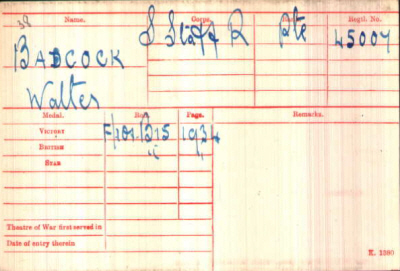 38 Name. Corps. Rank. Regtl. No.
BADCOCK S. Staff R Pte 45007
Walter
Medal. Roll. Page. Remarks.
VICTORY F/101. B15 1934
BRITISH " "
STAR
Theatre of War first served in
Date of entry therein
K. 1380